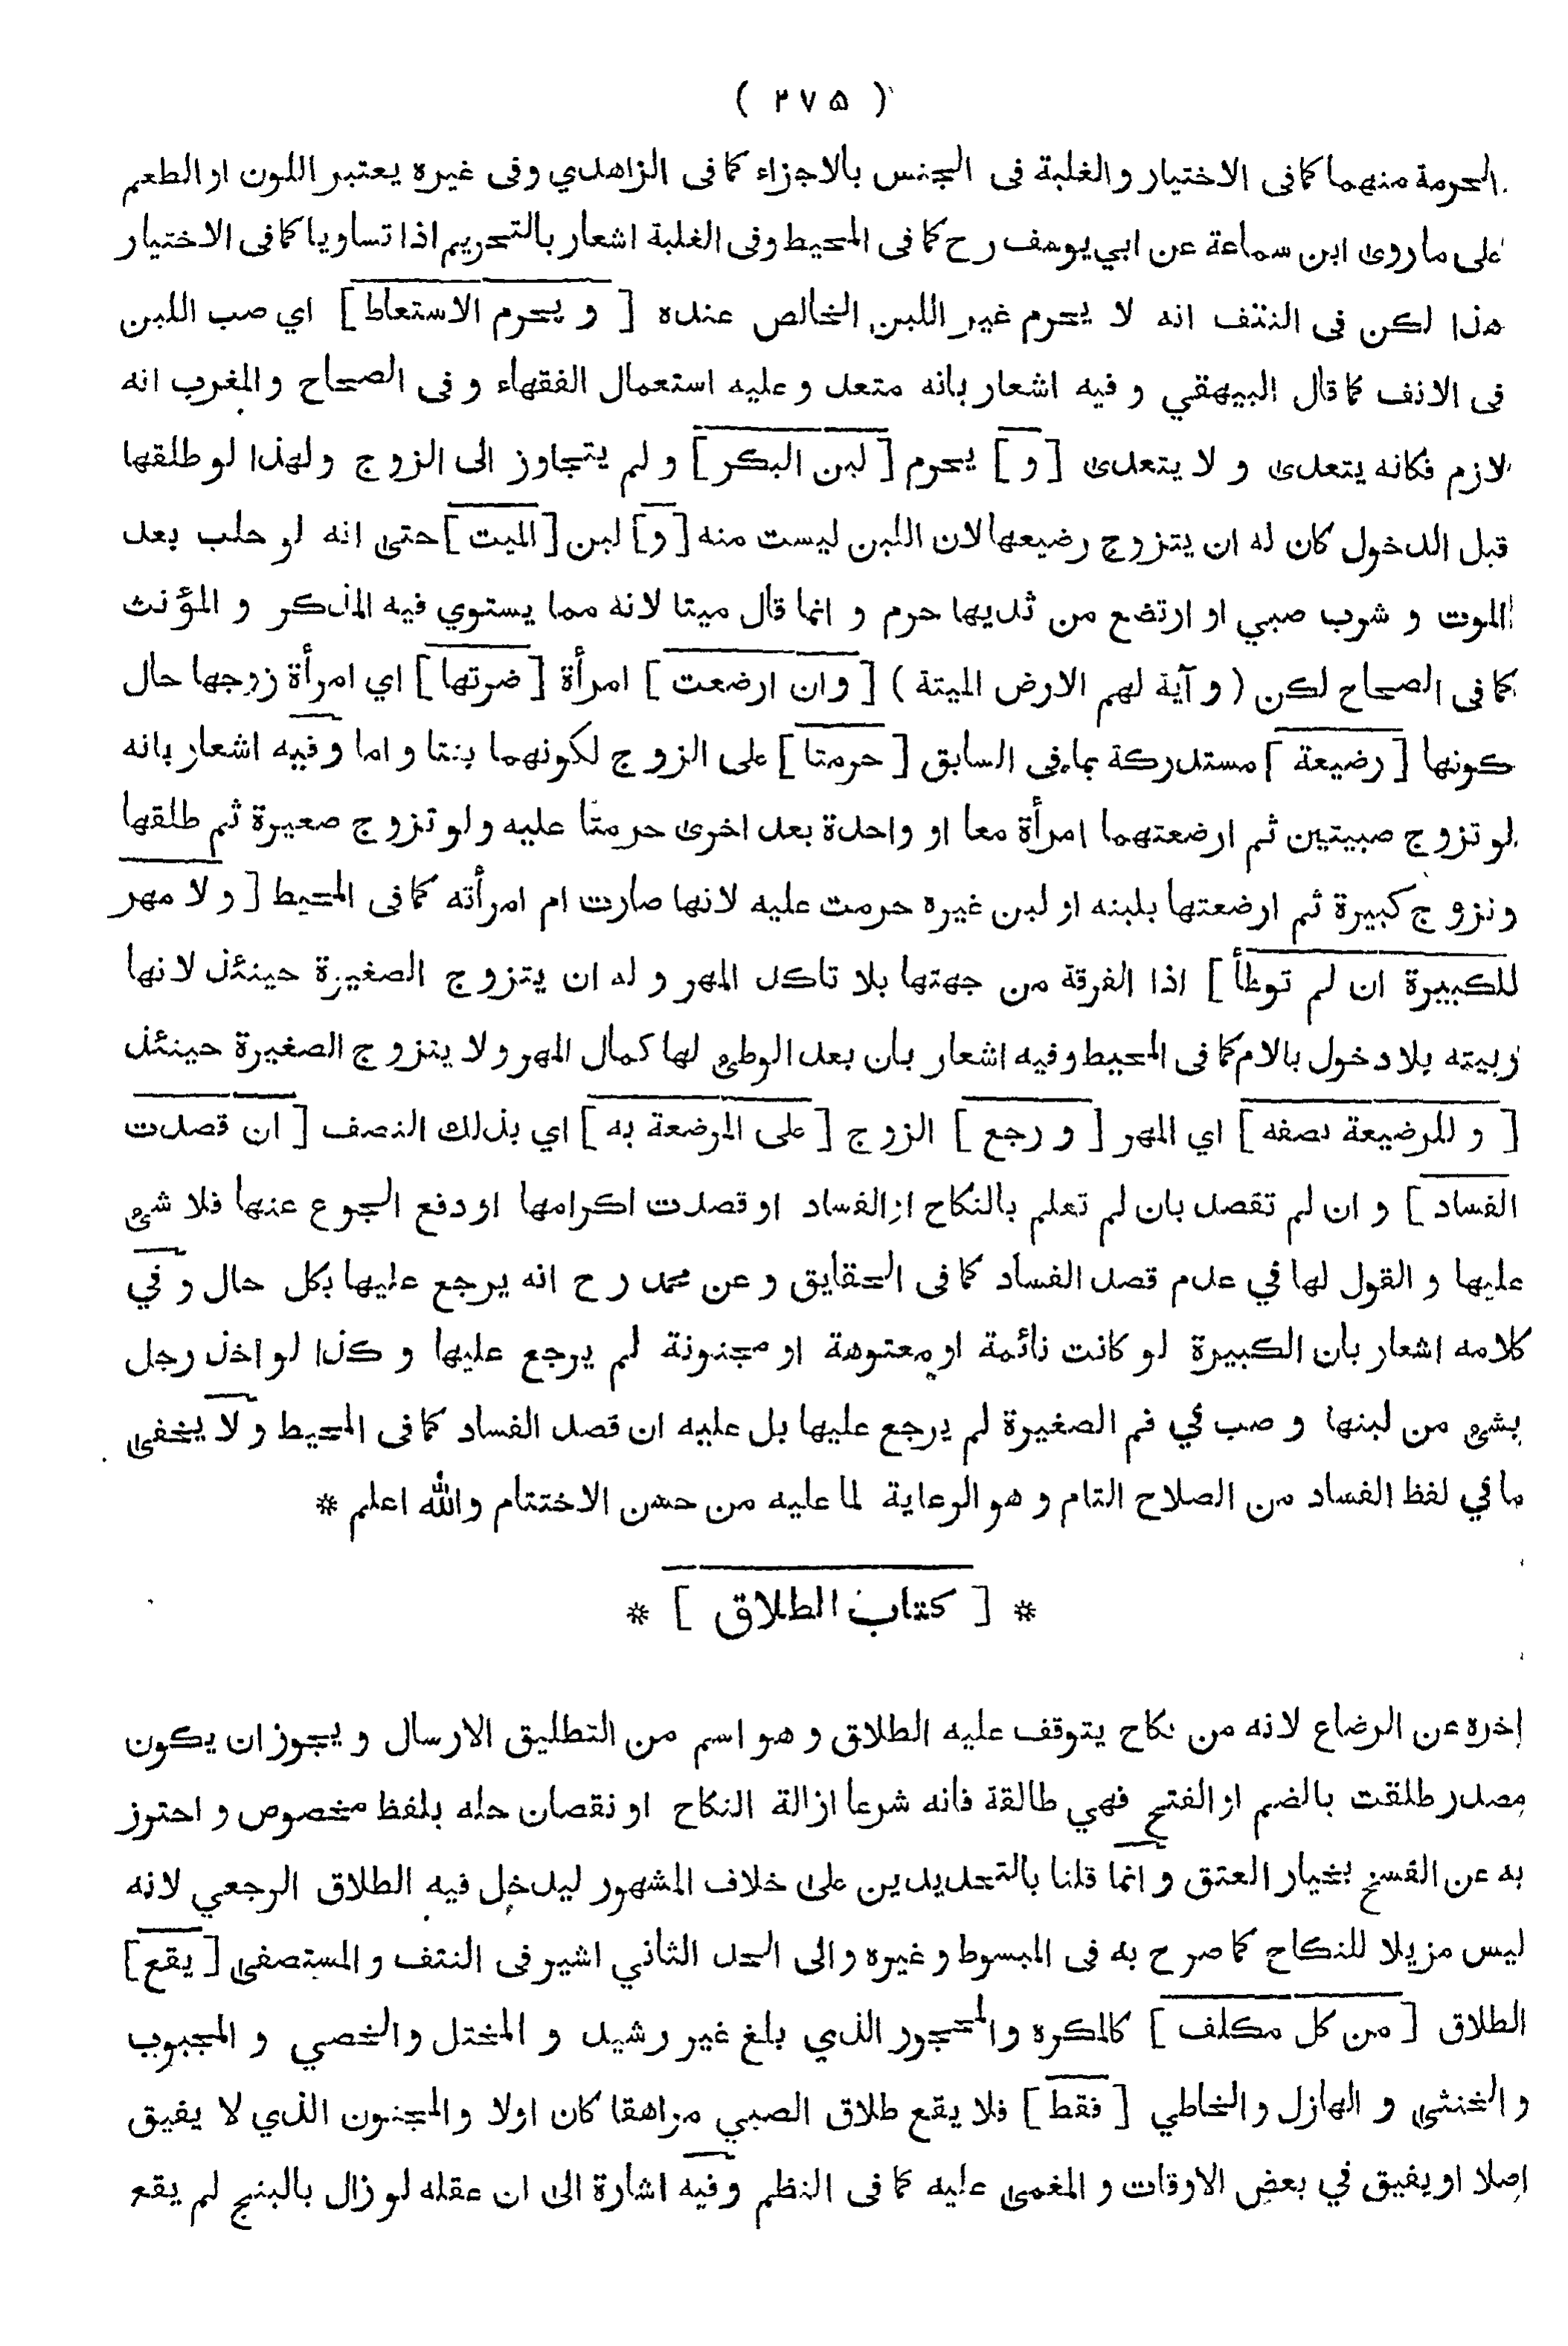 ( ٢٧٥ )
الحرمة منهما كما فى الاختيار والغلبة فى الجنس بالاجزاء كما فى الزاهدي وفى غيره يعتبر اللون او الطعم
على ما روى ابن سماعة عن ابي يوسف رح كما فى المحيط وفى الغلبة اشعار بالتحريم اذا تساويا كما فى الاختيار
هذا لكن فى النتف انه لا يحرم غير اللبن الخالص عنده [ و يحرم الاستعاط ] اي صب اللبن
فى الانف كما قال البيهقي و فيه اشعار بانه متعد و عليه استعمال الفقهاء و فى الصحاح و المغرب انه
لازم فكانه يتعدى و لا يتعدى [ و ] يحرم [ لبن البكر ] و لم يتجاوز الى الزوج ولهذا لو طلقها
قبل الدخول كان له ان يتزوج رضيعها لان اللبن ليست منه [ و ] لبن [ الميت ] حتى انه لو حلب بعد
الموت و شرب صبي او ارتضع من ثديها حرم و انما قال ميتا لانه مما يستوي فيه المذكر و المؤنث
كما فى الصحاح لكن ( و آية لهم الارض الميتة ) [ وان ارضعت ] امرأة [ ضرتها ] اي امرأة زوجها حال
كونها [ رضيعة ] مستدركة بما فى السابق [ حرمتا ] على الزوج لكونهما بنتا و اما وفيه اشعار بانه
لو تزوج صبيتين ثم ارضعتهما امرأة معا او واحدة بعد اخرى حرمتا عليه و لو تزوج صغيرة ثم طلقها
ونزوج كبيرة ثم ارضعتها بلبنه او لبن غيره حرمت عليه لانها صارت ام امرأته كما فى المحيط [ و لا مهر
للكبيرة ان لم توطأ ] اذا الفرقة من جهتها بلا تاكد المهر و له ان يتزوج الصغيرة حينئذ لانها
ربيته بلا دخول بالام كما فى المحيط وفيه اشعار بان بعد الوطئ لها كمال المهر ولا يتزوج الصغيرة حينئذ
[ و للرضيعة نصفه ] اي المهر [ و رجع ] الزوج [ على المرضعة به ] اي بذلك النصف [ ان قصدت
الفساد ] و ان لم تقصد بان لم تعلم بالنكاح او الفساد او قصدت اكرامها او دفع الجوع عنها فلا شئ
عليها و القول لها في عدم قصد الفساد كما فى الحقايق و عن محمد رح انه يرجع عليها بكل حال و في
كلامه اشعار بان الكبيرة لو كانت نائمة او معتوهة او مجنونة لم يرجع عليها و كذا لو اخذ رجل
بشئ من لبنها و صب في فم الصغيرة لم يرجع عليها بل عليه ان قصد الفساد كما فى المحيط و لا يخفى
ما في لفظ الفساد من الصلاح التام و هو الرعاية لما عليه من حسن الاختتام والله اعلم *
* [ كتاب الطلاق ] *
اخره عن الرضاع لانه من نكاح يتوقف عليه الطلاق و هو اسم من التطليق الارسال و يجوز ان يكون
مصدر طلقت بالضم او الفتح فهي طالقة فانه شرعا ازالة النكاح او نقصان حله بلفظ مخصوص و احترز
به عن الفسخ بخيار العتق و انما قلنا بالتحديدين على خلاف المشهور ليدخل فيه الطلاق الرجعي لانه
ليس مزيلا للنكاح كما صرح به فى المبسوط و غيره و الى الحد الثاني اشير فى النتف و المستصفى [ يقع ]
الطلاق [ من كل مكلف ] كالمكره والمحجور الذي بلغ غير رشيد و المختل والخصي و المجبوب
و الخنثى و الهازل والخاطي [ فقط ] فلا يقع طلاق الصبي مراهقا كان اولا والمجنون الذي لا يفيق
اصلا او يفيق في بعض الاوقات و المغمى عليه كما فى النظم وفيه اشارة الى ان عقله لو زال بالبنج لم يقع